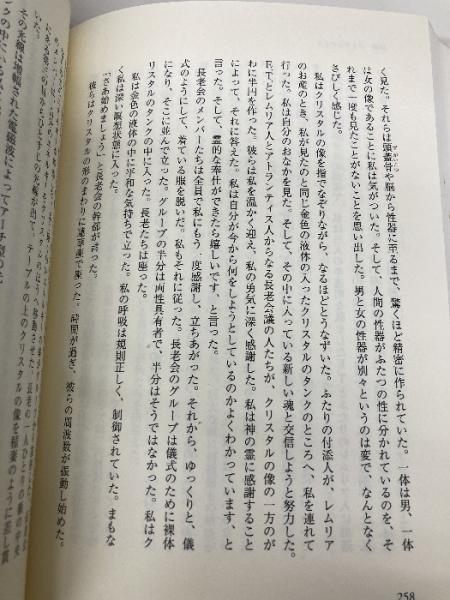 く見た。それらは頭蓋骨や脳から性器に至るまで、驚くほど精密に作られていた。一体は男、一体
は女の像であることに私は気がついた。そして、人間の性器がふたつの性に分かれているのを、そ
れまで一度も見たことがないことを思い出した。男と女の性器が別々というのは変で、なんとなく
さびしく感じた。
私はクリスタルの像を指でなぞりながら、なるほどとうなずいた。ふたりの付添人が、レムリア
のお産のとき、私が見たのと同じ金色の液体の入ったクリスタルのタンクのところへ、私を連れて
行った。私は自分のおなかを見た。そして、その中に入っている新しい魂と交信しようと努力した。
E・T・とレムリア人とアトランティス人からなる長老会議の人たちが、クリスタルの像の一方のが
わに半円を作った。彼らは私を温かく迎え、私の勇気に深く感謝した。私は神の霊に感謝すること
によって、それに答えた。私は自分が今から何をしようとしているのかよくわかっています、と
言った。そして、霊的な奉仕ができたら嬉しいです、と言った。
長老会のメンバーたちは全員で私にもう一度感謝し、立ちあがった。それから、ゆっくりと、儀
式のようにして、着ている服を脱いだ。私もそれに従った。長老会のグループは儀式のために裸体
になり、そこに並んで立った。グループの半分は両性具有者で、半分はそうではなかった。私はク
リスタルのタンクの中に入った。長老たちは座った。
私は金色の液体の中に平和な気持ちで立った。私の呼吸は規則正しく、制御されていた。まもな
く私は深い瞑想状態に入った。
「さあ始めましょう」と長老会の幹部が言った。
彼らはクリスタルの形のまわりに蓮華座で座った。時間が過ぎ、彼らの周波数が振動し始めた。
258